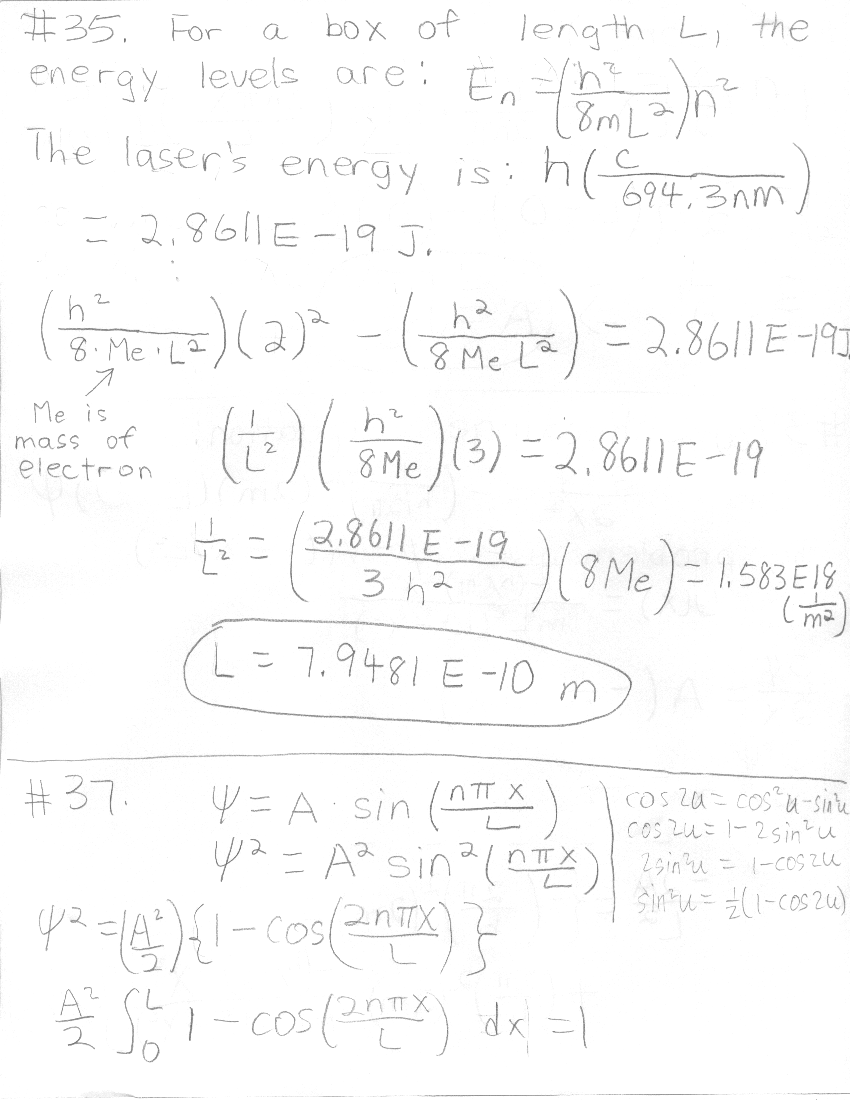 #35. For a box of length L, the
energy levels are: En = (h²/8mL²)n²
The laser's energy is: h(c/694.3nm)
= 2.8611E-19 J.
(h²/8·Me·L²)(2)² - (h²/8 Me L²) = 2.8611E-19J
Me is
mass of
electron
(1/L²)(h²/8Me)(3) = 2.8611E-19
1/L² = (2.8611E-19/3h²)(8Me) = 1.583E18
(1/m²)
L = 7.9481 E-10 m
#37. Ψ = A · sin(nπx/L)
Ψ² = A² sin²(nπx/L)
cos2u = cos²u-sin²u
cos2u = 1-2sin²u
2sin²u = 1-cos2u
sin²u = ½(1-cos2u)
Ψ² = (A²/2){1-cos(2nπx/L)}
A²/2 ∫₀ᴸ 1-cos(2nπx/L) dx = 1